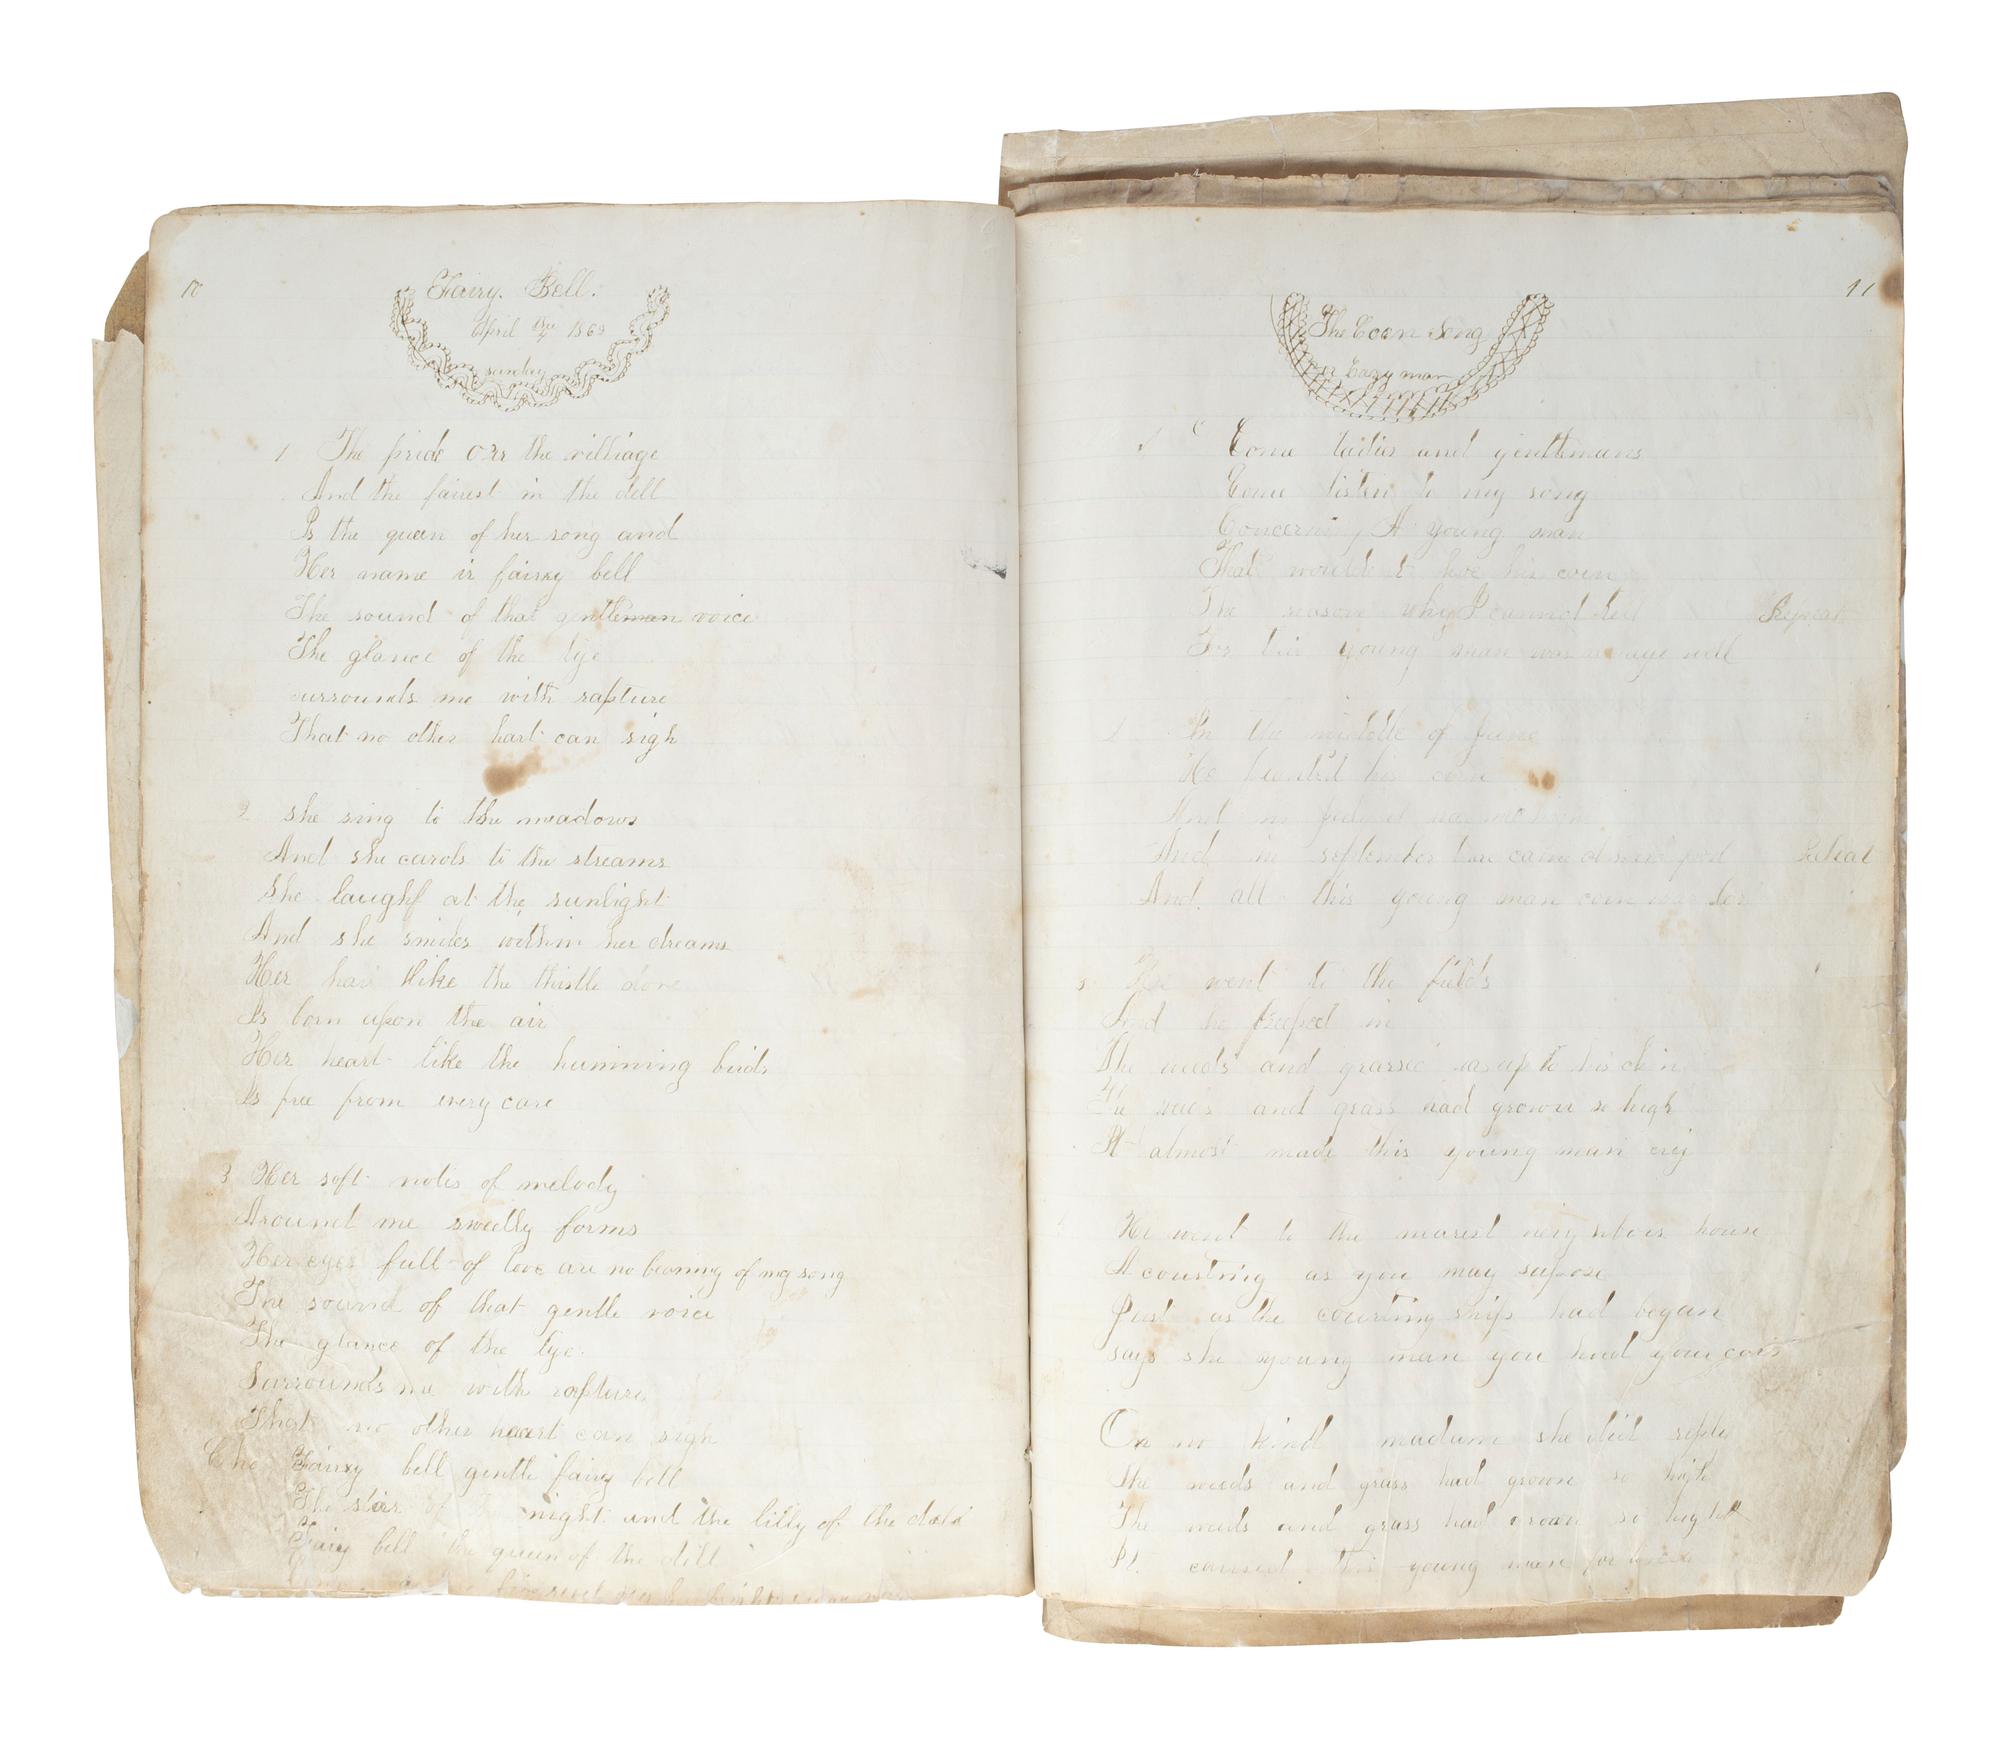 10
Fairy. Bell.
April the 4 1869
sunday
1 The pride over the villiage
And the fairest in the dell
Is the quen of her song and
Her name is fairy bell
The sound of that gentleman voice
The glance of the Eye
surrounds me with rapture
That no other hart can sigh
2 she sing to the meadows
And she carols to the streams
she laughf at the sunlight
And she smiles within her dreams
Her hair like the thistle done
Is born upon the air
Her heart like the humming birds
Is free from every care
3 Her soft notes of melody
Around me sweetly forms
Her eyes full of love are no beaming of my song
The sound of that gentle voice
The glance of the Eye.
Surrounds me with rapture
That no other heart can sigh
Cho Fairy bell gentle fairy bell
The star of night and the lilly of the dald
Fairy bell the queen of the dell
11
The Corn Song
or Lazy man
1 Come ladies and gentlemans
Come listen to my song
Concerning A young man
That would to hoe his corn
The reason why I cannot tell Repeat
For this young man was always well
2 In the middle of June
He planted his corn
And in july it was
And in september there came a frost Repeat
And all this young man corn was
3 He went to the fields
And he peeped in
The weeds and grasse was up to his chin
The weeds and grass had grown so high
It almost made this young man cry
He went to the nearest neighbors house
A courting as you may supose
Just as the courting ship had began
says she young man you hoed your corn
On no kind madam she did reply
The weeds and grass had grown so high
The weeds and grass had grown so high
It caused this young man for